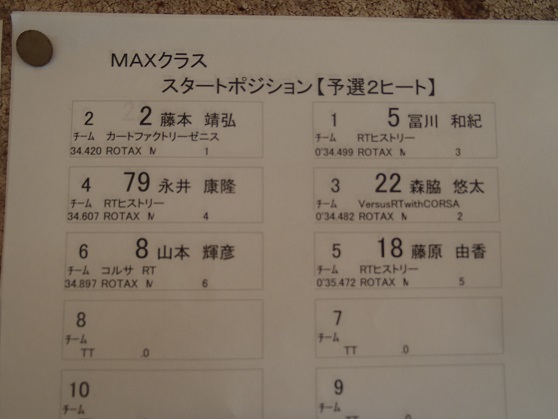 MAXクラス
スタートポジション【予選2ヒート】
2 2 藤本 靖弘
チーム カートファクトリーゼニス
34.420 ROTAX M 1
1 5 冨川 和紀
チーム RTヒストリー
0'34.499 ROTAX M 3
4 79 永井 康隆
チーム RTヒストリー
34.607 ROTAX M 4
3 22 森脇 悠太
チーム VersusRTwithCORSA
0'34.482 ROTAX M 2
6 8 山本 輝彦
チーム コルサ RT
34.897 ROTAX M 6
5 18 藤原 由香
チーム RTヒストリー
0'35.472 ROTAX M 5
8
チーム
TT .0
7
チーム
TT .0
10
チーム
9
チーム